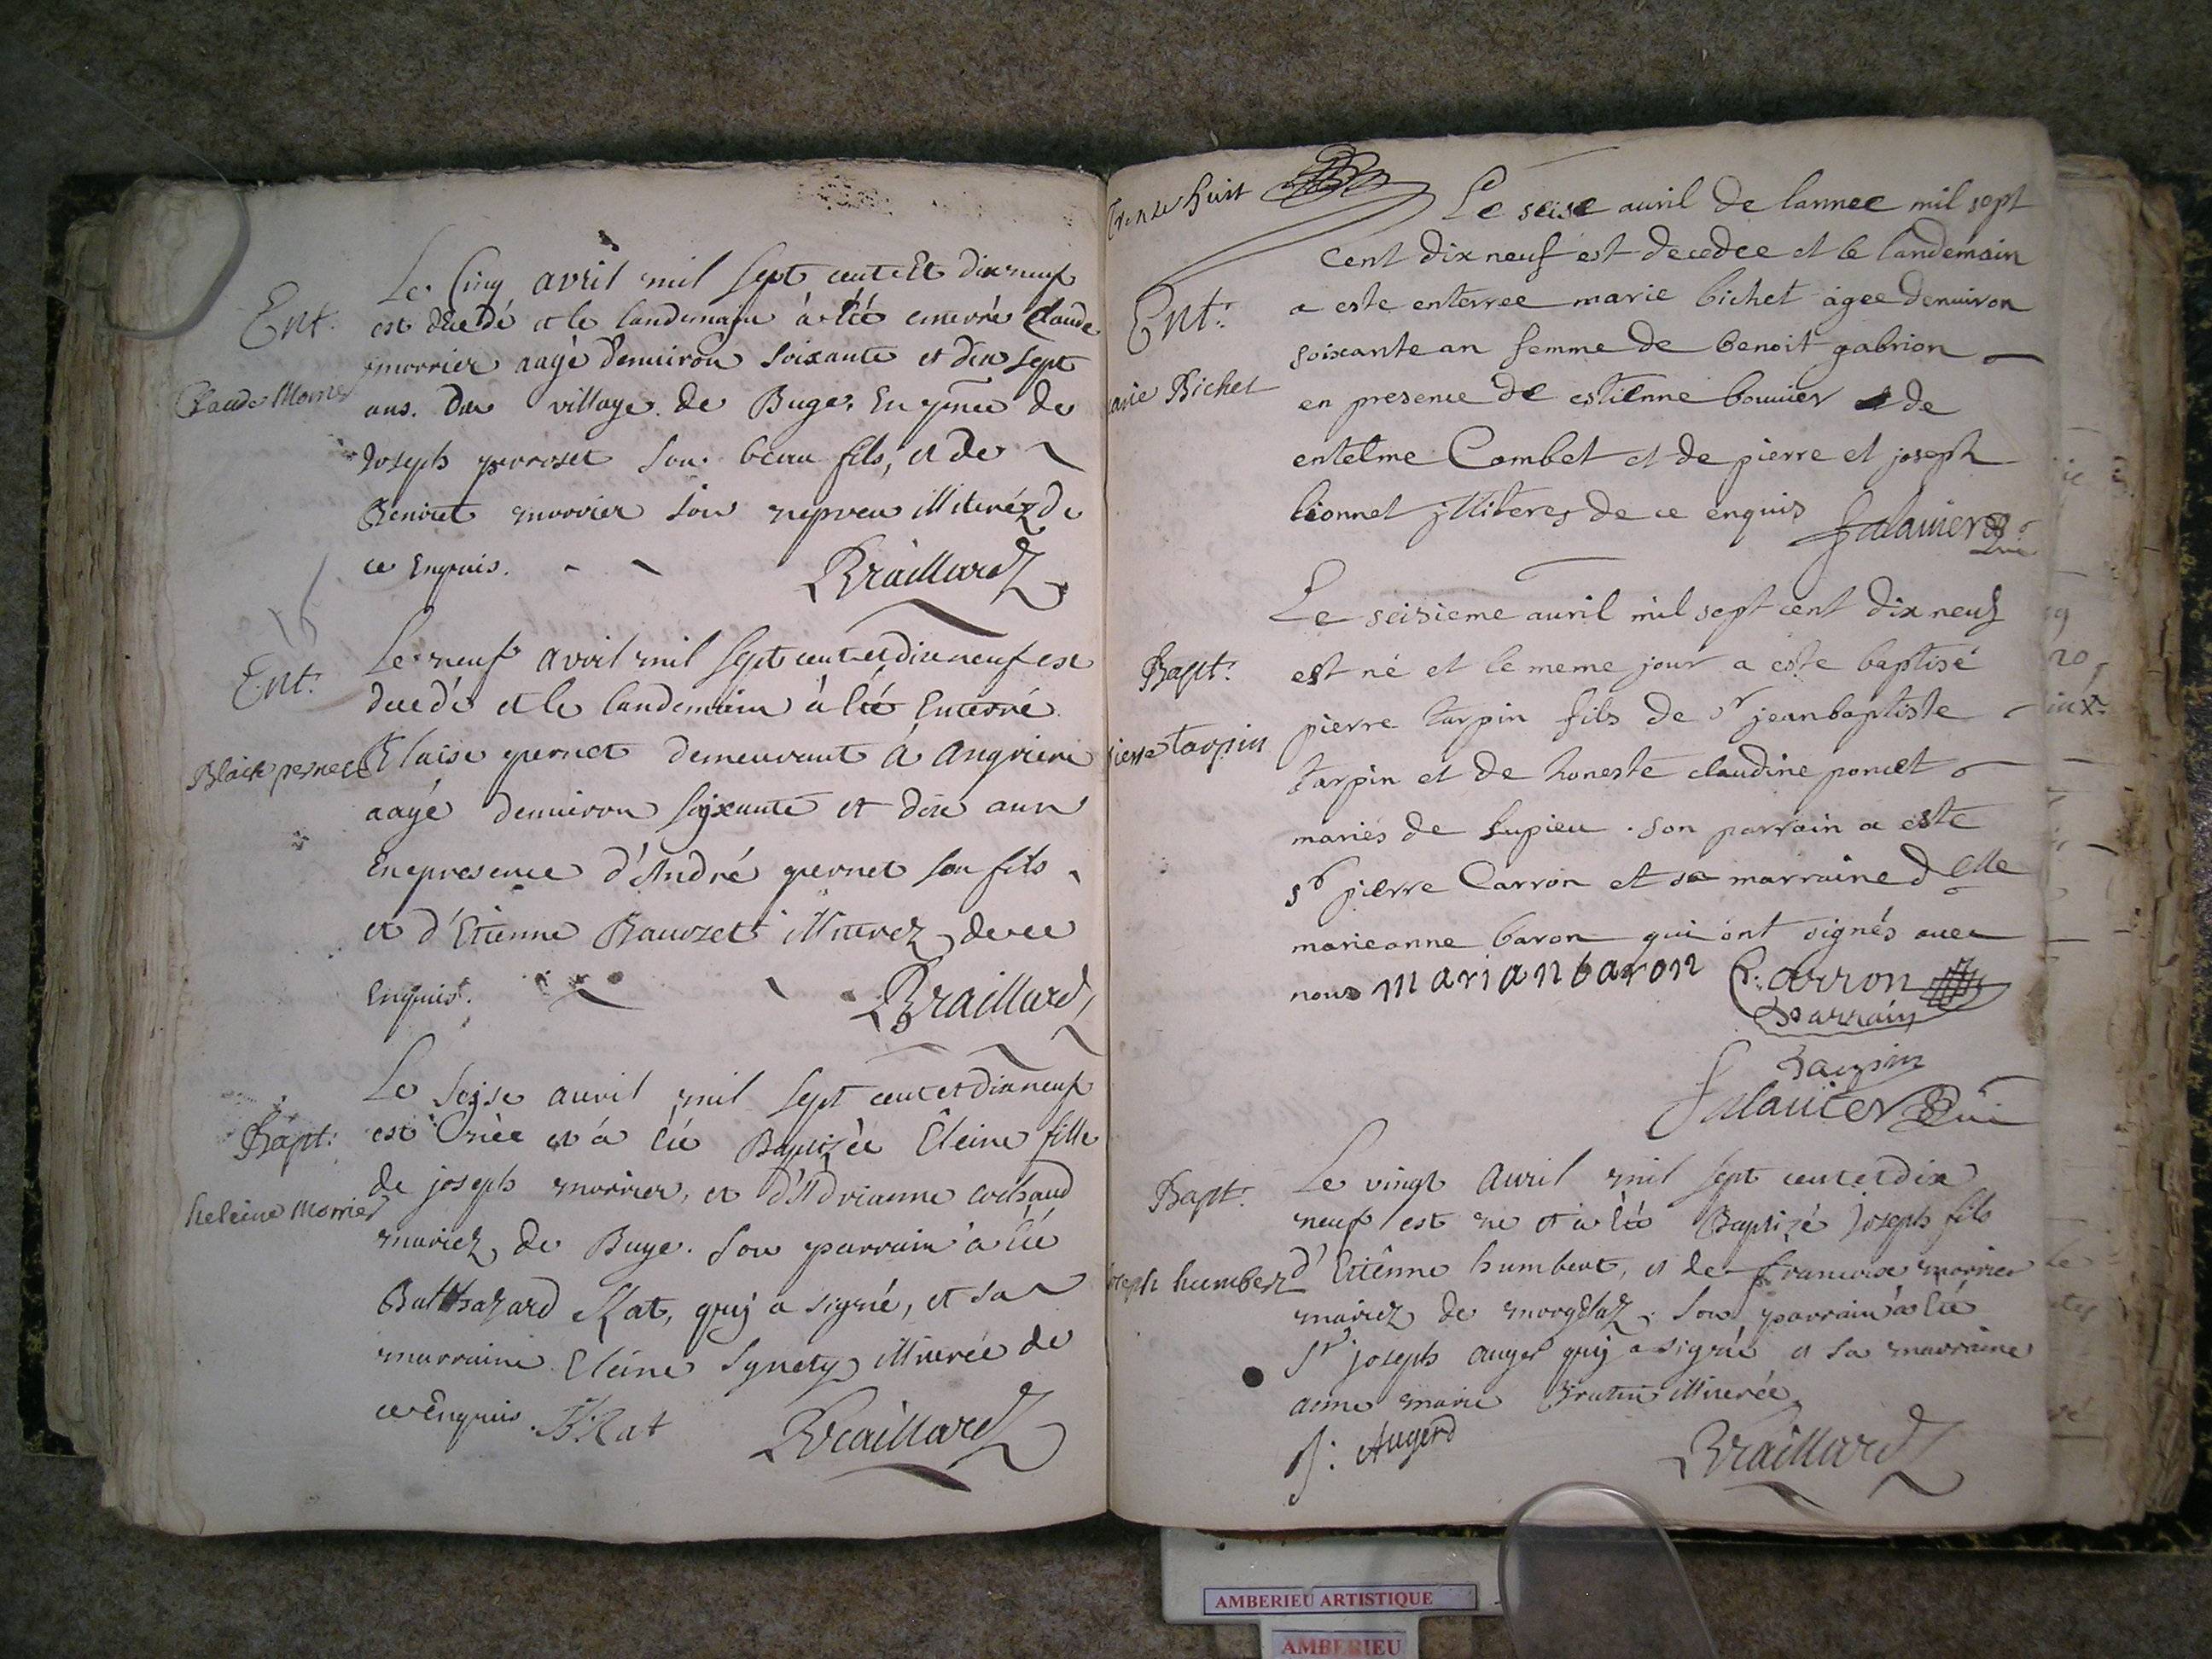 Ent.
Claude Morrier
Le Cinq avril mil sept cent et dix neuf
est decedé et le landemain à été enterré Claude
morrier aagé d'enuiron soixante et dix sept
ans. du village de Buge. En pnce de
Joseph perroset son beau fils, et de
Benoict morrier son nepveu illiterez de
ce Enquis.
Braillard
Ent.
Blaise pernet
Le neuf avril mil sept cent et dix neuf est
decedé et le landemain à été Enterré
Blaise pernet demeurant à angrieres
aagé denuiron soixante et dix ans
En presence d'André pernet son fils
et d'Etienne illiterez de ce
Enquis.
Braillard
Bapt.
heleine Morrier
Le seize auril mil sept cent et dix neuf
est née et à été Baptizée Eleine fille
de joseph morrier, et d'Adrianne cochand
mariez de Buge. son parrain à été
Balthazard Rat, quy a signé, et sa
marraine Eleine illiterée de
ce Enquis. B Rat Braillard
Trente huit
Ent.
marie Bichet
Le seise auril de lannee mil sept
cent dix neuf est decedee et le landemain
a este enterree marie bichet agee denuiron
soixante an femme de benoit gabrion
en presence de estienne bouuier et de
entelme Combet et de pierre et joseph
lionnet illiteres de ce enquis Jalauier
Bapt.
pierre tarpin
Le seisieme auril mil sept cent dix neuf
est né et le meme jour a este baptisé
pierre tarpin fils de sr jean baptiste
tarpin et de honeste claudine poncet
mariés de lupieu . son parrain a este
sr pierre Carron et sa marraine delle
marieanne baron qui ont signés auec
nous marianbaron P. Carron
Parrain
Tarpin
Jalauier
Bapt.
joseph humbert
Le vingt auril mil sept cent et dix
neuf est né et à été Baptizé Joseph fils
d'Etienne humbert, et de francoise morrier
mariez de morgelaz. son parrain à été
Sr joseph auger quy a signé et sa marraine
anne marie illiterée
J: Augerd Braillard
AMBERIEU ARTISTIQUE
AMBERIEU